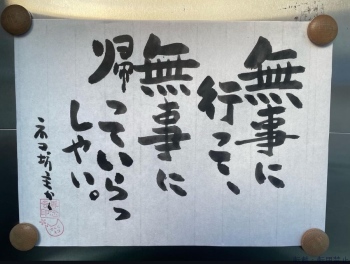 無事に
行って、
無事に
帰っていらっ
しゃい。
ネコ坊主かく